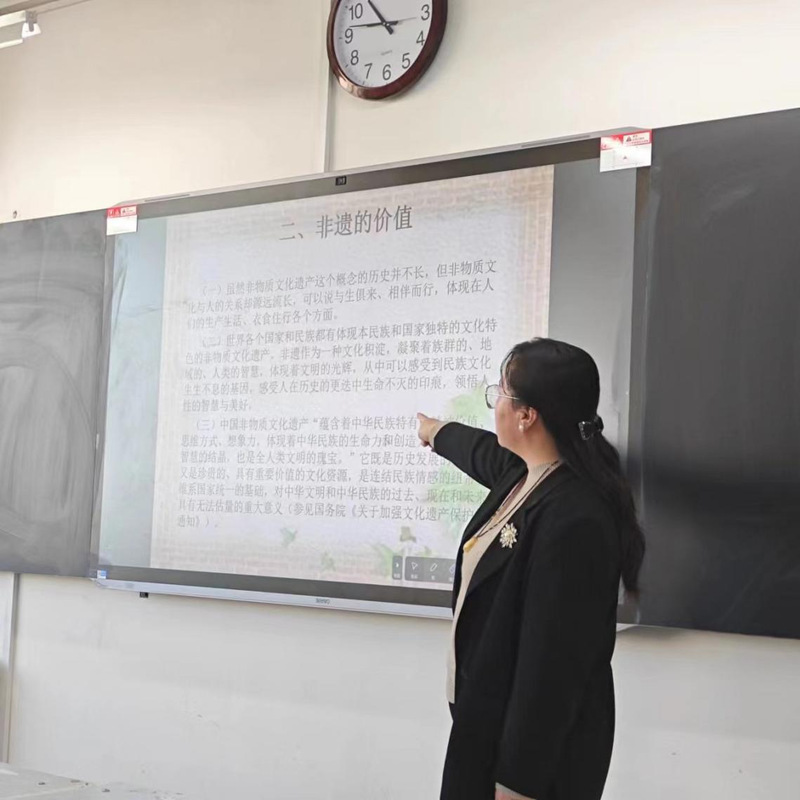 10
3
9
4
8
7
6
5
二、非遗的价值
（一）虽然非物质文化遗产这个概念的历史并不长，但非物质文
化与人的关系却源远流长，可以说与生俱来、相伴而行，体现在人
们的生产生活、衣食住行各个方面。
（二）世界各个国家和民族都有体现本民族和国家独特的文化特
色的非物质文化遗产。非遗作为一种文化积淀，凝聚着族群的、地
域的、人类的智慧，体现着文明的光辉，从中可以感受到民族文化
生生不息的基因，感受人在历史的更迭中生命不灭的印痕，领悟人
性的智慧与美好。
（三）中国非物质文化遗产“蕴含着中华民族特有 价值、
思维方式、想象力，体现着中华民族的生命力和创造
智慧的结晶，也是全人类文明的瑰宝。”它既是历史发展的
又是珍贵的、具有重要价值的文化资源，是连结民族情感的纽带
维系国家统一的基础，对中华文明和中华民族的过去、现在和未来
具有无法估量的重大意义（参见国务院《关于加强文化遗产保护
通知》）。